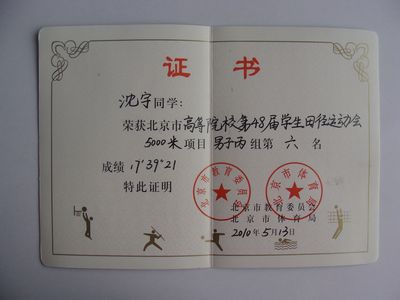 证 书
沈宇同学:
荣获北京市高等院校第48届学生田径运动会
5000米项目 男子丙组第 六 名
成绩 17'39"21
特此证明
北京市教育委员会
北京市体育局
北京市教育委员会
北京市体育局
2010年5月13日